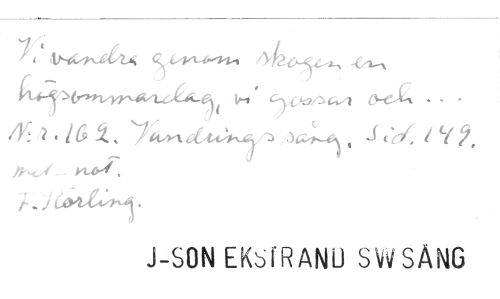 Vi vandra genom skogen en
högsommardag, vi gossar och ...
N:r. 162. Vandringssång. Sid. 149.
met not.
F. Körling.
J-SON EKSTRAND SWSÅNG